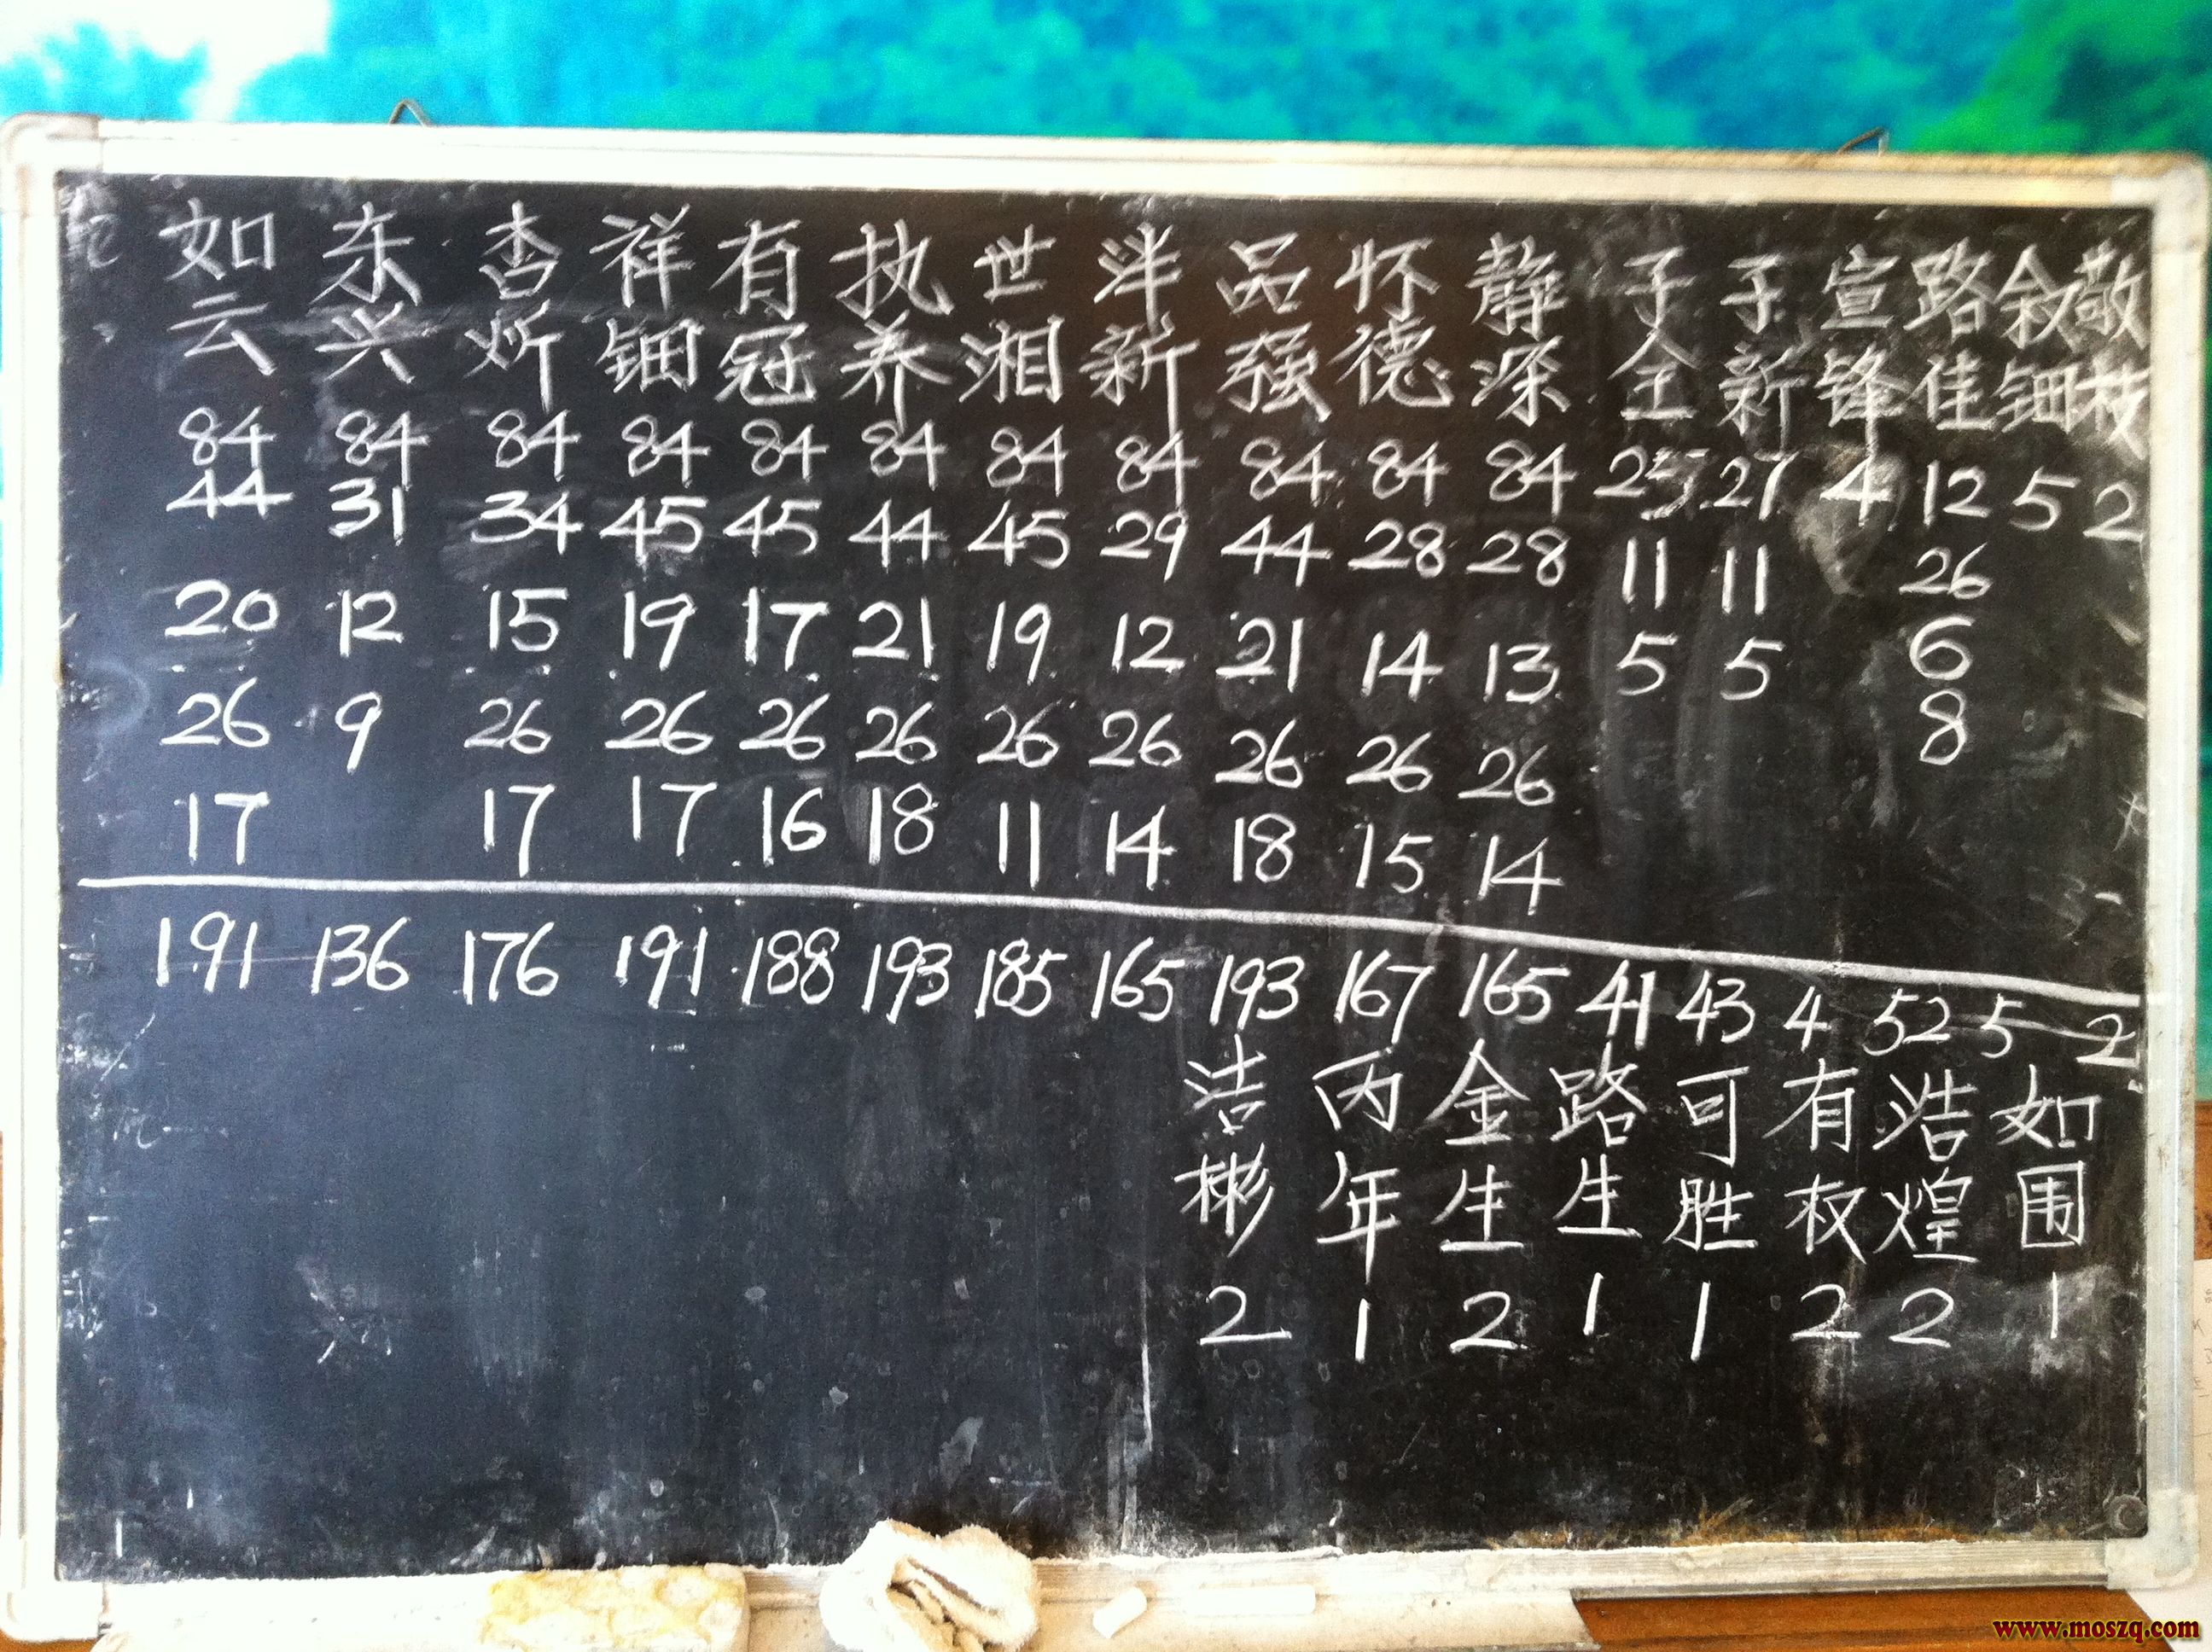 如云 东兴 杏炘 祥钿 有冠 执养 世湘 洋新 品强 怀德 静深 子全 子新 宣锋 路佳 叙钿 敬枝
84 84 84 84 84 84 84 84 84 84 84 25 27 4 12 5 2
44 31 34 45 45 44 45 29 44 28 28 11 11 26
20 12 15 19 17 21 19 12 21 14 13 5 5 6
26 9 26 26 26 26 26 26 26 26 26 8
17 17 17 16 18 11 14 18 15 14
191 136 176 191 188 193 185 165 193 167 165 41 43 4 52 5 2
洁彬 丙年 金生 路生 可胜 有权 浩煌 如围
2 1 2 1 1 2 2 1
www.moszq.com